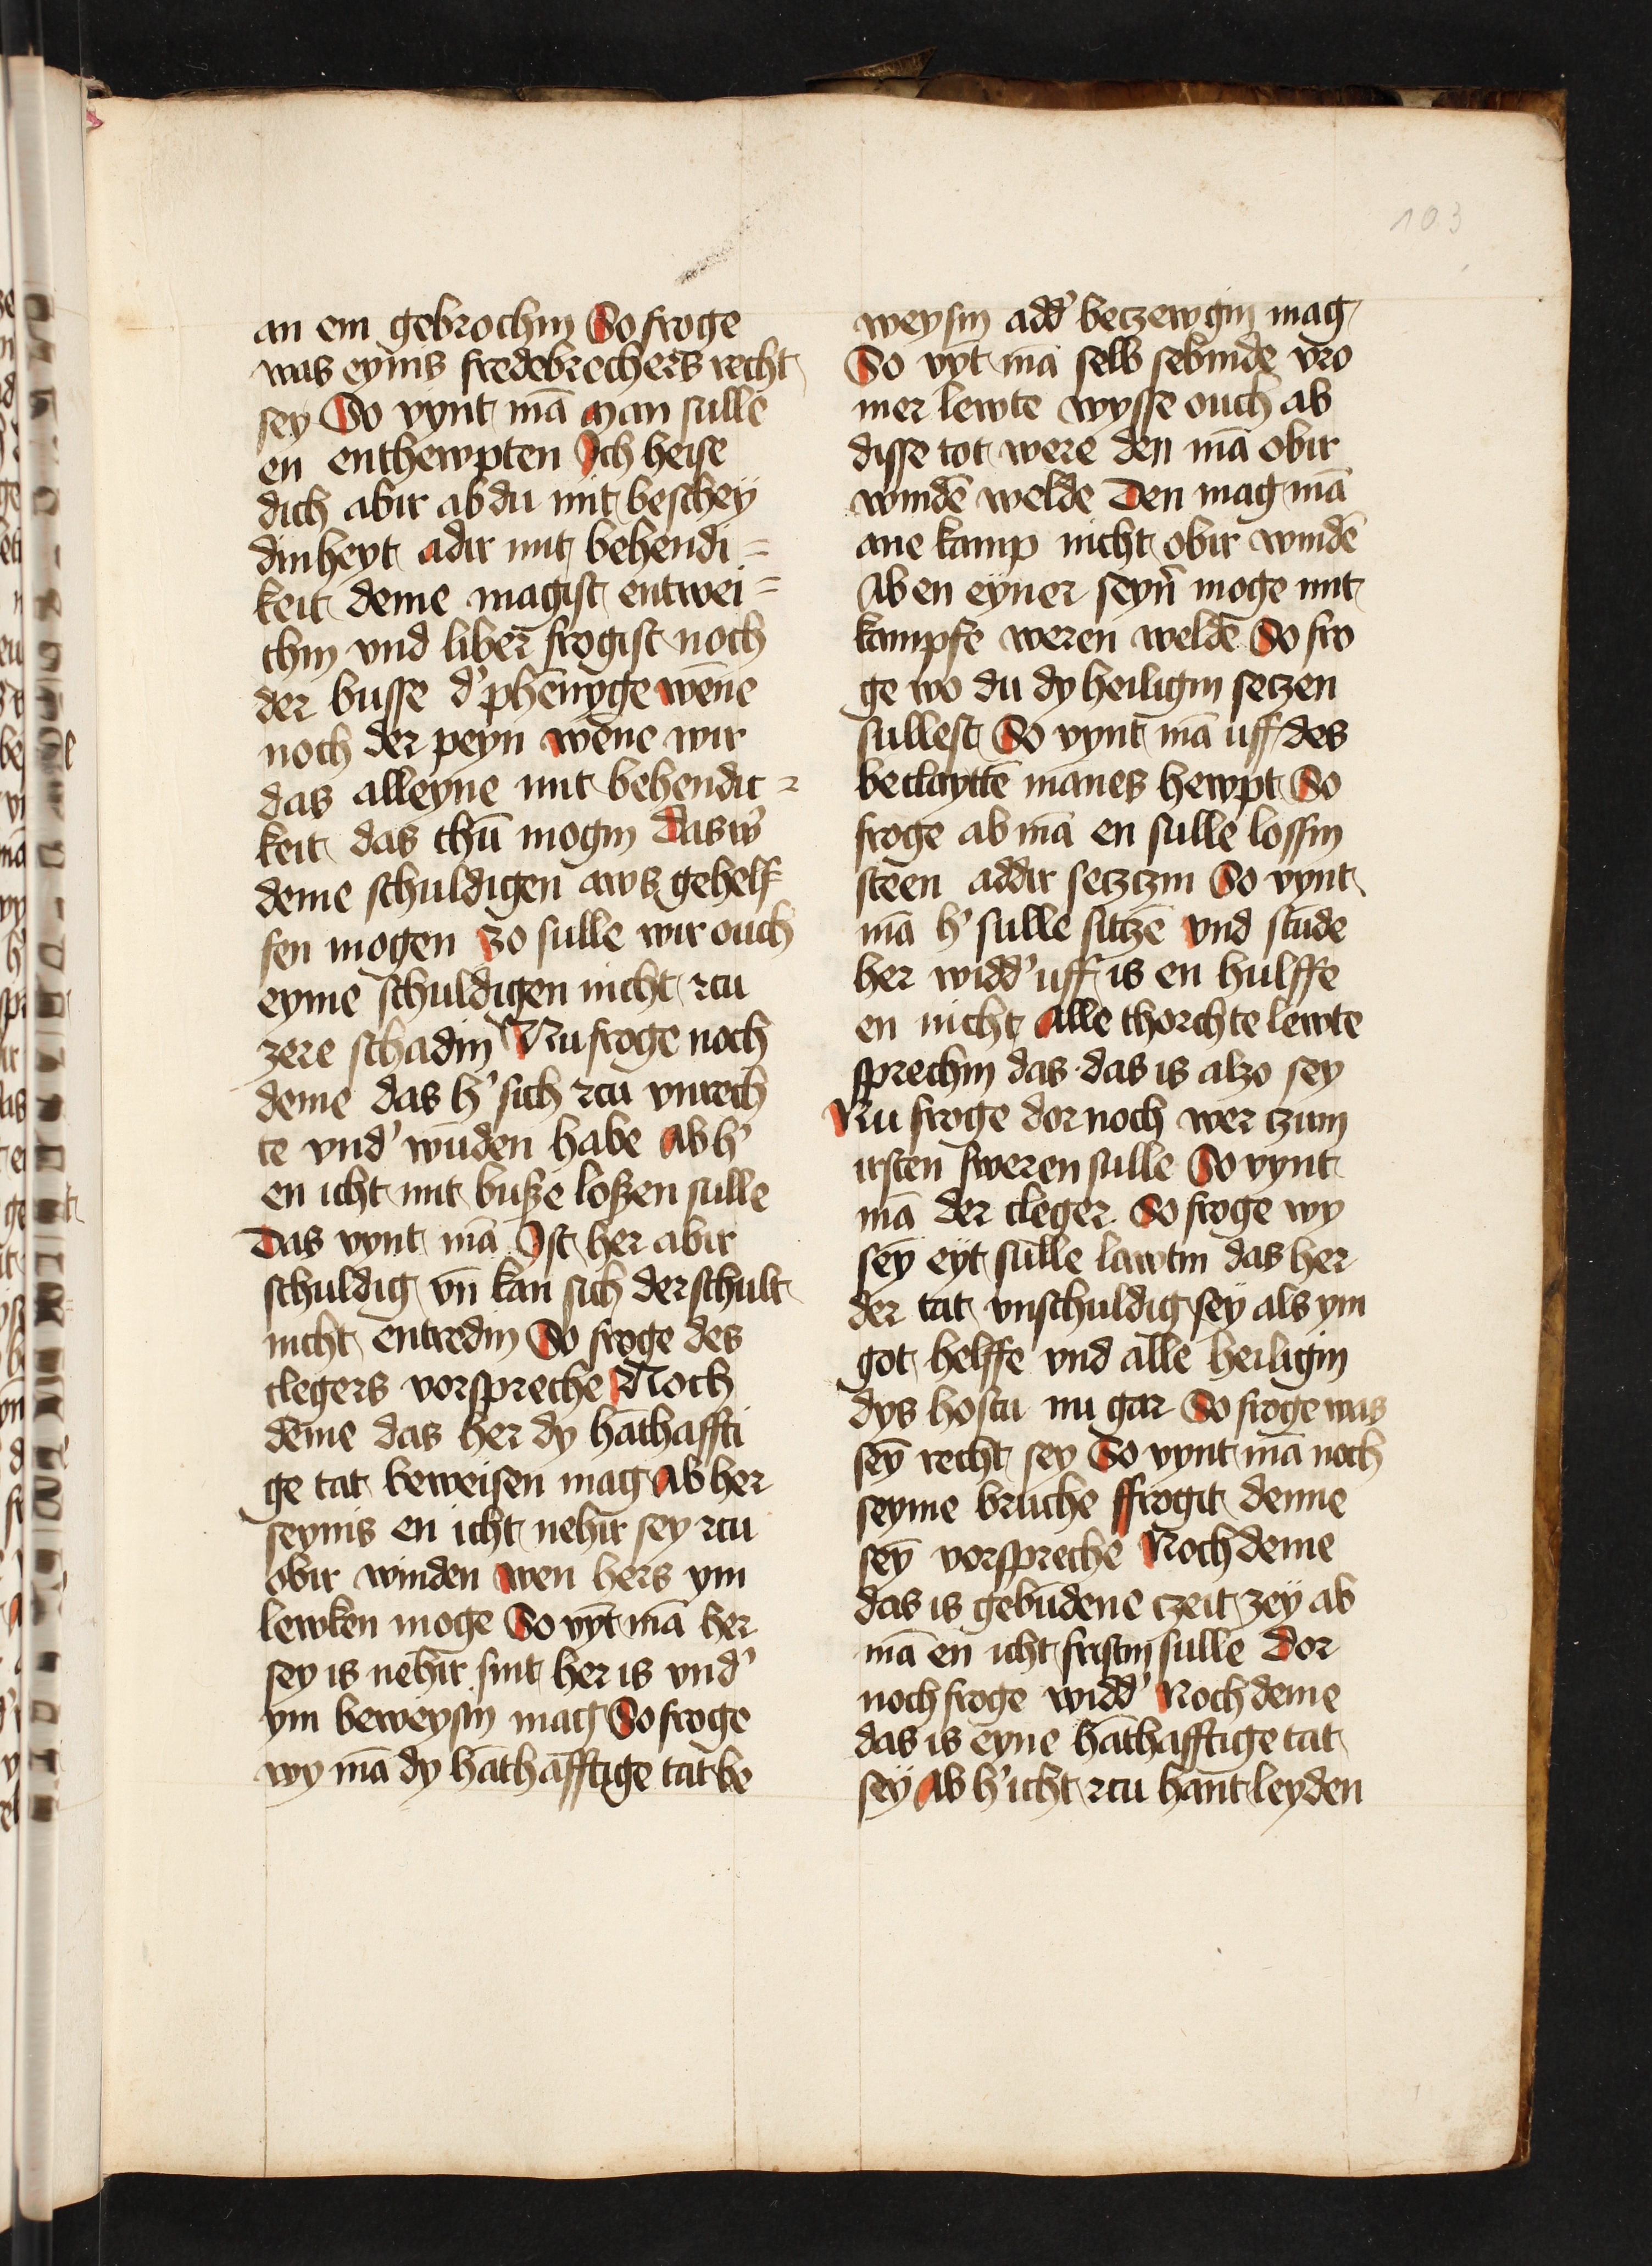 103
an em gebrochin So froge
was eynis fredebrechers recht
sey So vynt mā man sulle
en enthewpten Ich heise
dich abir ab du mit beschey
dinheyt adir mit behendi=
keit deme magist entwei=
chin vnd liber frogist noch
der busse d' phennyge wēne
noch der peyn wēne wir
das alleyne mit behendic=
keit das thū mogin Das w'
deme schuldigen aws gehelf
fen mogen zo sulle wir ouch
eyme schuldigen nicht czu
zere schadin Nu froge noch
deme das h' sich czu vnrech
te vnd' wūden habe Ab h'
en icht mit buße loßen sulle
Das vynt mā Ist her abir
schuldig vn̄ kan sich der schult
nicht entredin So froge des
clegers vorspreche Noch
deme das her dy hāthaffti
ge tat beweisen mag Ab her
seynis en icht nehir sey czu
obir winden wen hers ym
lewken moge So vȳt mā her
sey is nehir sint her is vnd'
ym beweysin mag So froge
wy mā dy hāthafftige tat be
weysin add' betzewgin mag
So vȳt mā selb sebinde vro
mer lewte wysse ouch ab
disse tot were den mā obir
windē welde Den mag mā
ane kamp nicht obir windē
Ab en eyner seyn' moge mit
kampfe weren weldē So fro
ge wo du dy heiligin setzen
sullest So vynt mā uff des
beclaytē manes hewpt So
froge ab mā en sulle lossin
steen addir setzczin So vynt
mā h' sulle sitzē vnd stūde
her widd' uff is en hulffe
en nicht Alle thorchte lewte
sprechin das das is alzo sey
Nu froge dor noch wer czum
irsten sweren sulle So vynt
mā der cleger So froge wy
sey̅ eyt sulle lawtin das her
der tat vnschuldig sey als ym
got helffe vnd alle heiligin
dys hostu nu gar So froge was
sey̅ recht sey So vynt mā noch
seyme bruche ffrogit denne
sey̅ vorspreche Noch deme
das is gebūdene czeit zey ab
mā en icht fristin sulle Dor
noch froge widd' Noch deme
das is eyne hāthafftige tat
sey Ab h' icht czu hant leyden